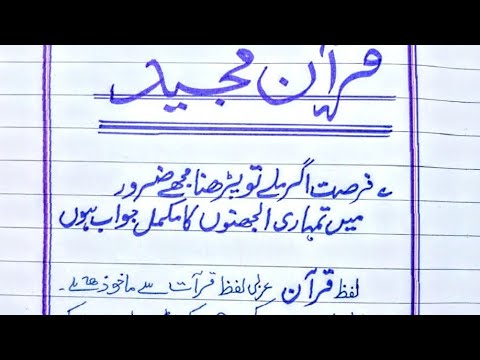 قرآن مجید
؎ فرصت اگر ملے تو پڑھنا مجھے ضرور
میں تمہاری الجھنوں کا مکمل جواب ہوں
لفظ قرآن عربی لفظ قرآت سے ماخوذ ھے۔